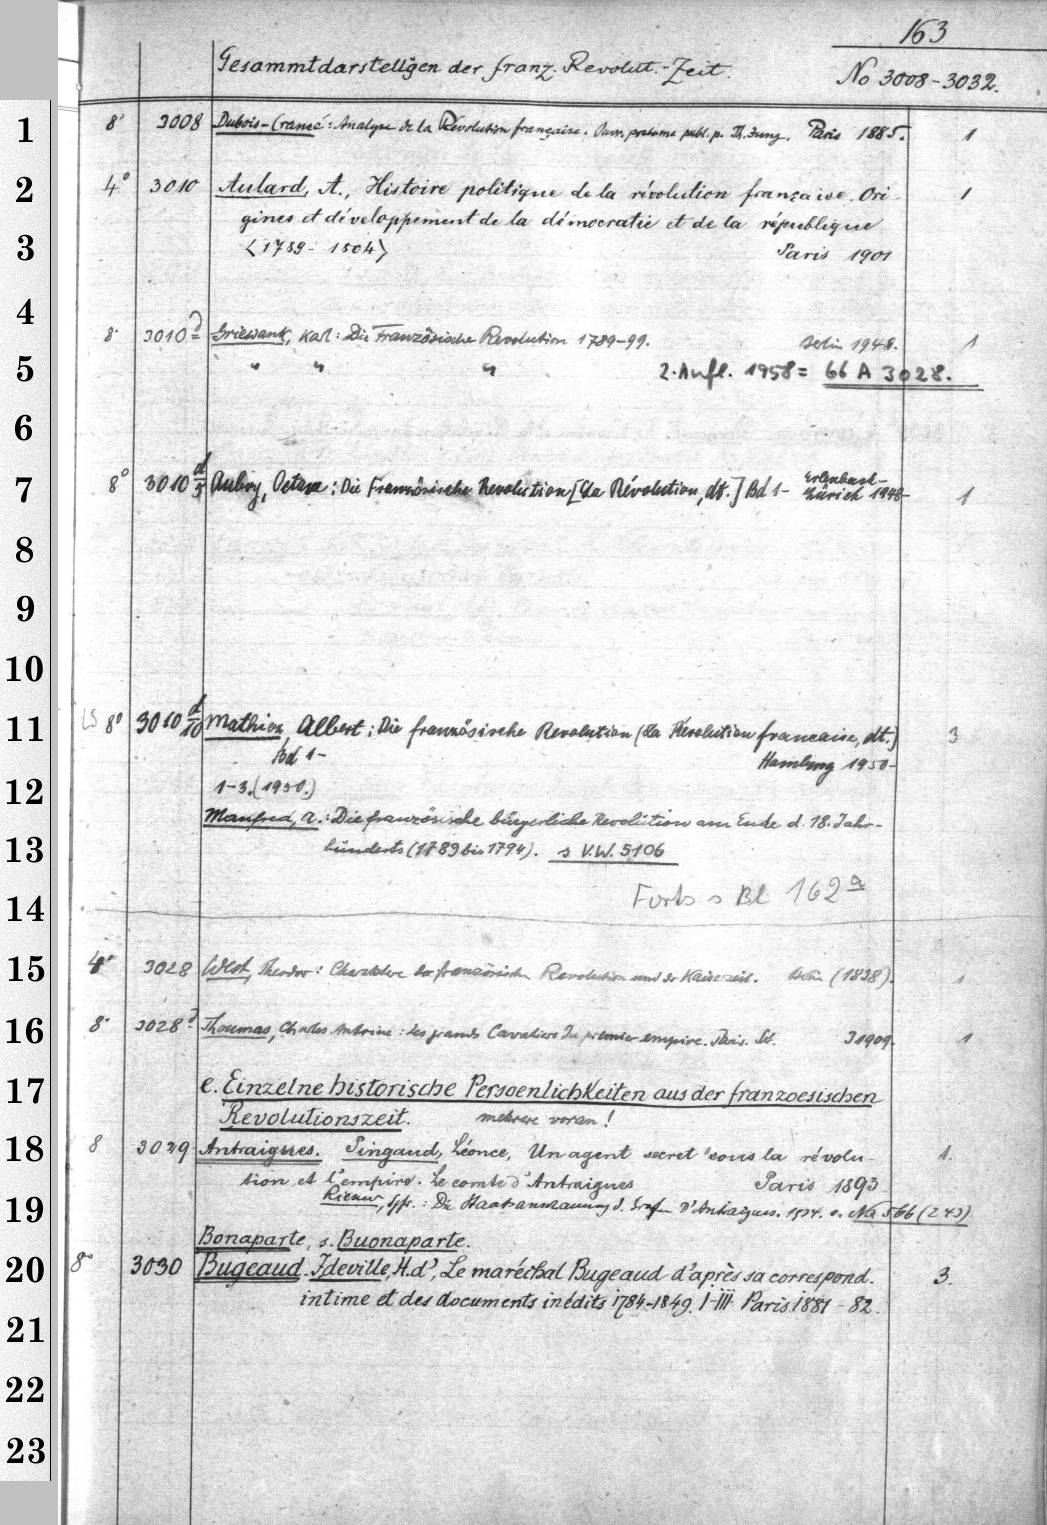 163
Gesammtdarstellgen der franz. Revolut.-Zeit.
No 3008-3032.
1 8° 3008 Dubois-Crancé: Analyse de la Révolution française. publ. p. Th. Jung. Paris 1885. 1
2 4° 3010 Aulard, A., Histoire politique de la révolution française. Ori-
gines et développement de la démocratie et de la république
3 <1789-1804> Paris 1901 1
4
8° 3010 d Griewank, Karl: Die Französische Revolution 1789-99. Berlin 1948. 1
5 " " " 2. Aufl. 1958 = 66 A 3028.
6
7 8° 3010 d/5 Aubry, Octave: Die Französische Revolution [La Révolution, dt.] Bd 1- Erlenbach-
Zürich 1948- 1
8
9
10
11 LS 8° 3010 d/10 Mathiez, Albert: Die französische Revolution (La Révolution francaise, dt.) 3
Bd 1- Hamburg 1950-
12 1-3. (1950.)
Manfred, A.: Die französische bürgerliche Revolution am Ende d. 18. Jahr-
13 hunderts (1789 bis 1794). s V.W. 5106
14 Forts s Bl 162 a
15 4° 3028 West, Theodor: Charaktere der französischen Revolution und der Kaiserzeit. Berlin (1838). 1
16 8° 3028 d Thoumas, Charles Antoine: Les grands Cavaliers du premier empire. Paris. 1909. 1
17 e. Einzelne historische Persoenlichkeiten aus der franzoesischen
Revolutionszeit. mehrere voran!
18 8 3029 Antraigues. Pingaud, Léonce, Un agent secret sous la révolu- 1.
tion et l'empire. Le comte d'Antraigues Paris 1893
19 Rieker, : Die Staatsanschauung d. Grafen d'Antraigues. s. Na 566 (243)
Bonaparte, s. Buonaparte.
20 8° 3030 Bugeaud. Ideville, H. d', Le maréchal Bugeaud d'après sa correspond. 3.
intime et des documents inédits 1784-1849. I-III Paris 1881-82.
21
22
23